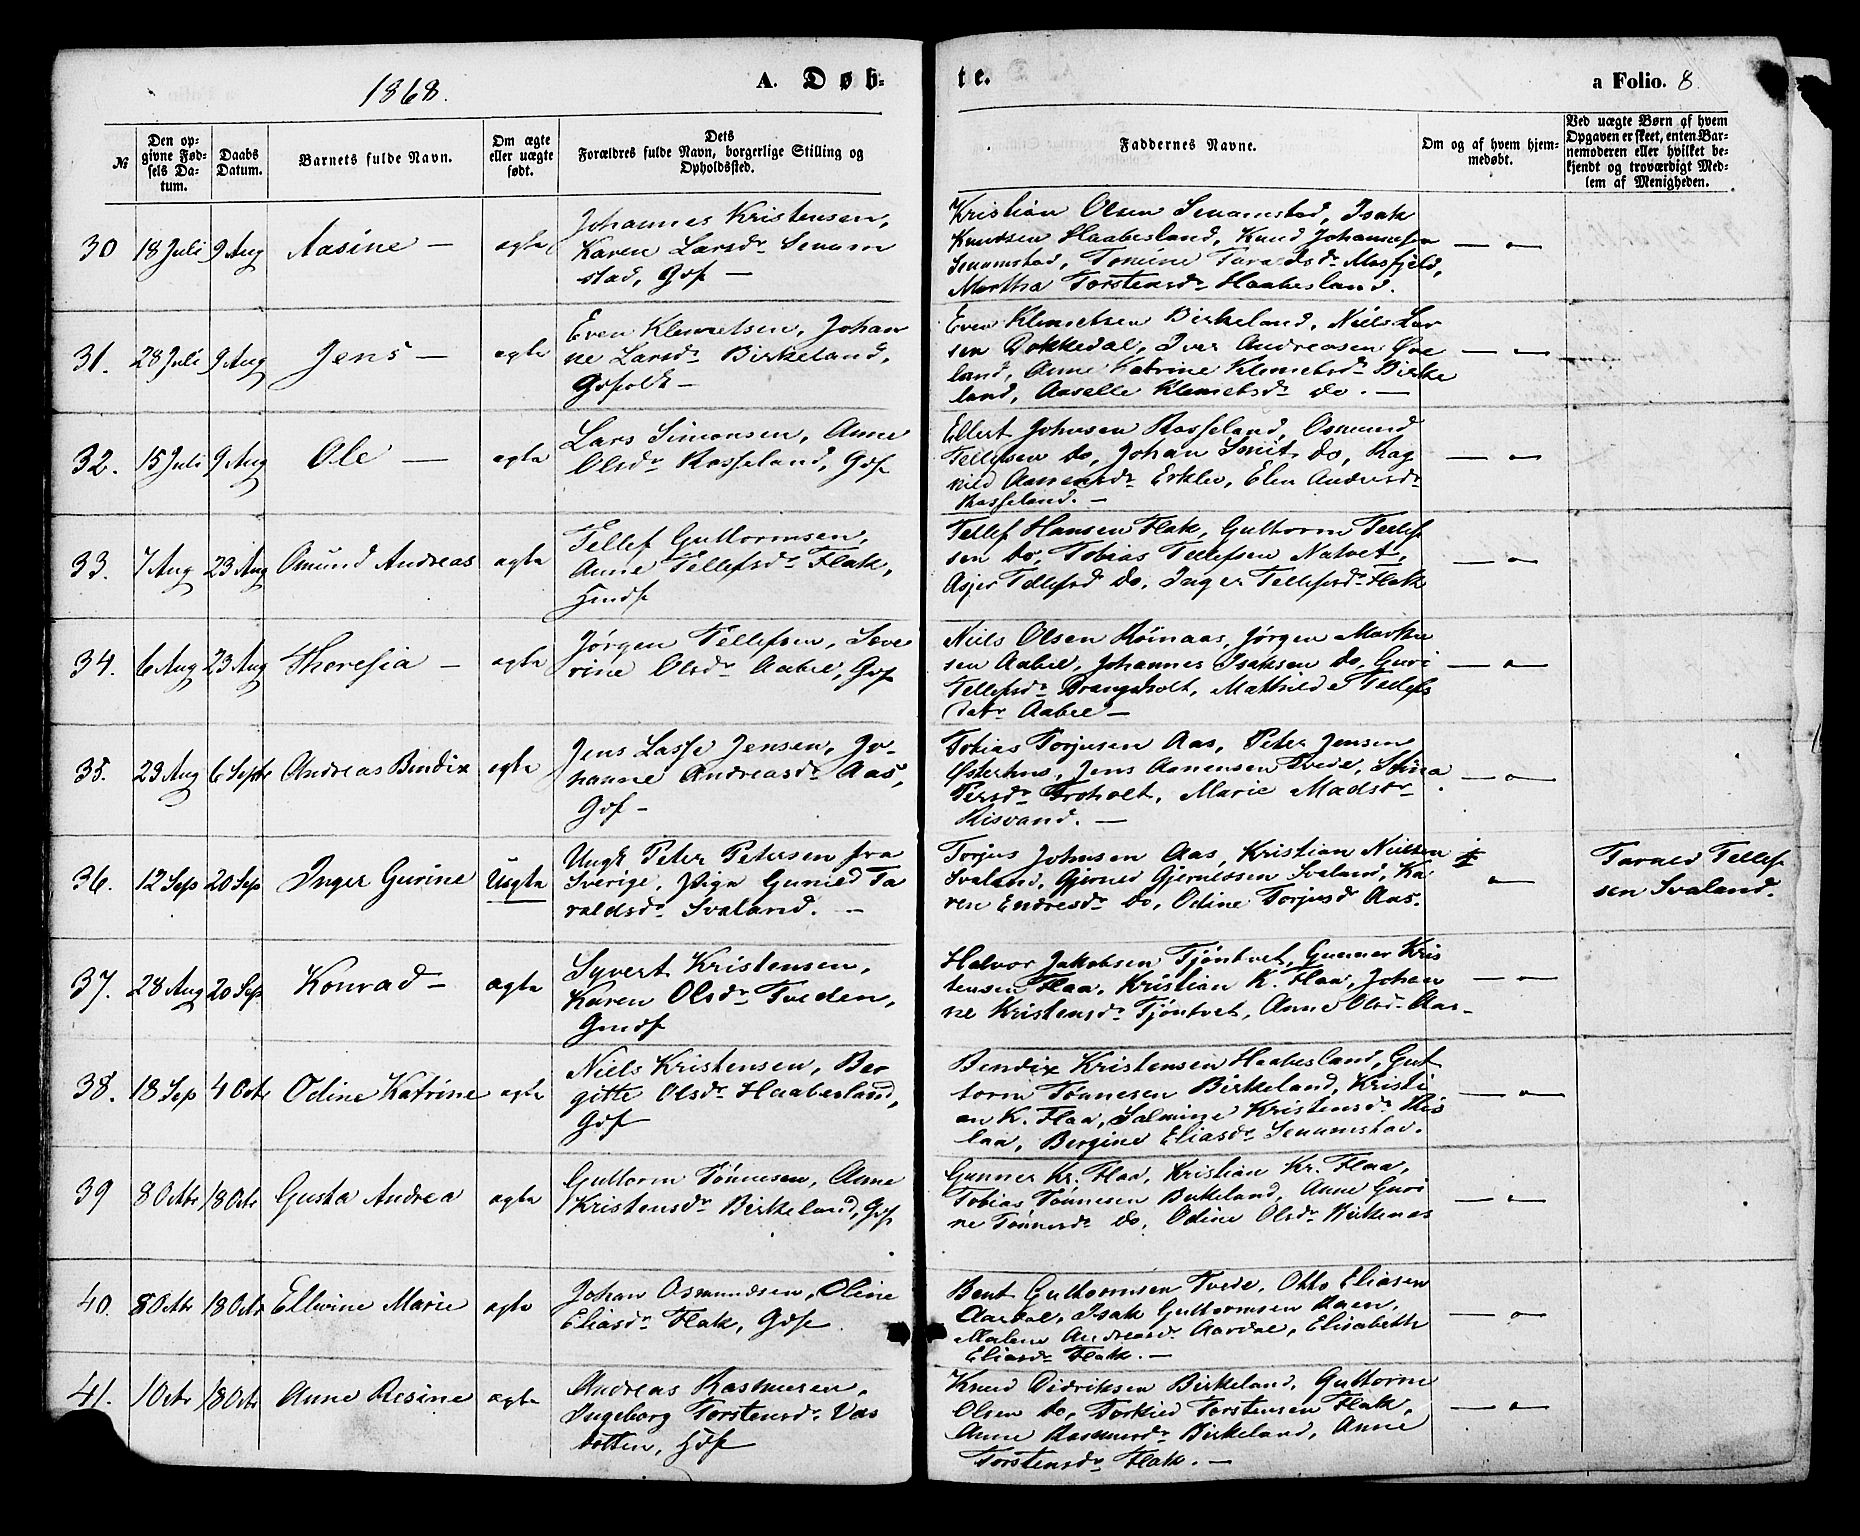 1868.
A. Døb-
te.
a Folio. 8.
№
Den opgivne Fødsels Datum.
Daabs Datum.
Barnets fulde Navn.
Om ægte eller uægte født.
Dets Forældres fulde Navn, borgerlige Stilling og Opholdssted.
Faddernes Navne.
Om og af hvem hjemmedøbt.
Ved uægte Børn af hvem Opgaven er skeet, enten Barnemoderen eller hvilket bekjendt og troværdigt Medlem af Menigheden.
30 18 Juli 9 Aug Aasine — ægte
Johannes Kristensen,
Karen Larsdr Senum
stad, Gbf —
Kristian Olsen Senumstad, Isak
Knudsen Haabesland, Knud Johannesen
Senumstad, Tomine Taraldsdr Mosfjeld,
Martha Torstensdr Haabesland.
— o —
31. 28 Juli 9 Aug Jens — ægte
Even Klemetsen, Johan
ne Larsdr Birkeland,
Gbfolk —
Even Klemetsen Birkeland, Niels Lar
sen Dokkedal, Iver Andreasen Øve
land, Anne Katrine Klemetsdr Birke
land, Aaselle Klemetsdr do. —
— o —
32. 15 Juli 9 Aug Ole — ægte
Lars Simonsen, Anne
Olsdr Rosseland, Gbf
Ellert Johnsen Rosseland, Osmund
Tellefsen do, Johan Smit do, Rag
nild Aanensdr Erklev, Elen Andersdr
Rosseland. —
— o —
33. 7 Aug 23 Aug Omund Andreas ægte
Tellef Guttormsen,
Anne Tellefsdr Flak,
Hmdf
Tellef Hansen Flak, Guttorm Tellef
sen do, Tobias Tellefsen Natvet,
Asjer Tellefsd do, Inger Tellefsdr Flak
— o —
34. 6 Aug 23 Aug Theresia — ægte
Jørgen Tellefsen, Seve
rine Olsdr Aabel, Gbf
Niels Olsen Römaas, Jørgen Marku
sen Aabel, Johannes Isaksen do, Guri
Tellefsdr Drangsholt, Mathilde Tellefs
datr Aabel —
— o —
35. 23 Aug 6 Septe Andreas Bendix ægte
Jens Lasse Jensen, Jo-
hanne Andreasdr Aas,
Gbf —
Tobias Torjusen Aas, Peter Jensen
Østerhus, Jens Aanensen Tvede, Stina
Persdr Froholt, Marie Madsdr
Risvand. —
— o —
36. 12 Sep 20 Sep Inger Gurine Uægte
Ungk Peter Petersen fra
Sverige, Pige Gunild Ta
raldsdr Svaland. —
Torjus Johnsen Aas, Kristian Nielsen
Svaland, Gjerued Gjeruldsen Svaland, Ka
ren Endresdr do, Odine Torjusd Aas.
— o —
Tarald Tellef
sen Svaland.
37. 28 Aug 20 Sep Konrad — ægte
Syvert Kristensen,
Karen Olsdr Tveden,
Gmdf
Halvor Jakobsen Tjöntvet, Gunner Kris
tensen Flaa, Kristian K. Flaa, Johan
ne Kristensdr Tjöntvet, Anne Olsdr Aas-
— o —
38. 18 Sep 4 Octr Odine Katrine ægte
Niels Kristensen, Ber
gitte Olsdr Haabesland,
Gbf
Bendix Kristensen Haabesland, Gut
torm Tönnesen Birkeland, Kristi
an K. Flaa, Salmine Kristensdr Ris
laa, Bergine Eliasdr Senumstad.
— o —
39 8 Octr 18 Octr Gusta Andrea ægte
Guttorm Tönnesen, Anne
Kristensdr Birkeland, Gbf
Gunner Kr. Flaa, Kristian Kr. Flaa,
Tobias Tönnesen Birkeland, Anne Guri
ne Tönnesdr do, Odine Olsdr Birkenes
— o —
40. 8 Octr 18 Octr Ellevine Marie ægte
Johan Osmundsen, Oline
Eliasdr Flak, Gbf.
Bent Guttormsen Tvede, Otto Eliasen
Aardal, Isak Guttormsen Raen,
Malene Andreasdr Aardal, Elisabeth
Eliasdr Flak. —
— o —
41. 1 Octr 18 Octr Anne Resine ægte
Andreas Rasmusen,
Ingeborg Torstensdr Vas
botten, Hbf
Knud Didriksen Birkeland, Guttorm
Olsen do, Torkild Torstensen Flak,
Anne Rasmusdr Birkeland, Anne
Torstensdr Flak. —
— o —